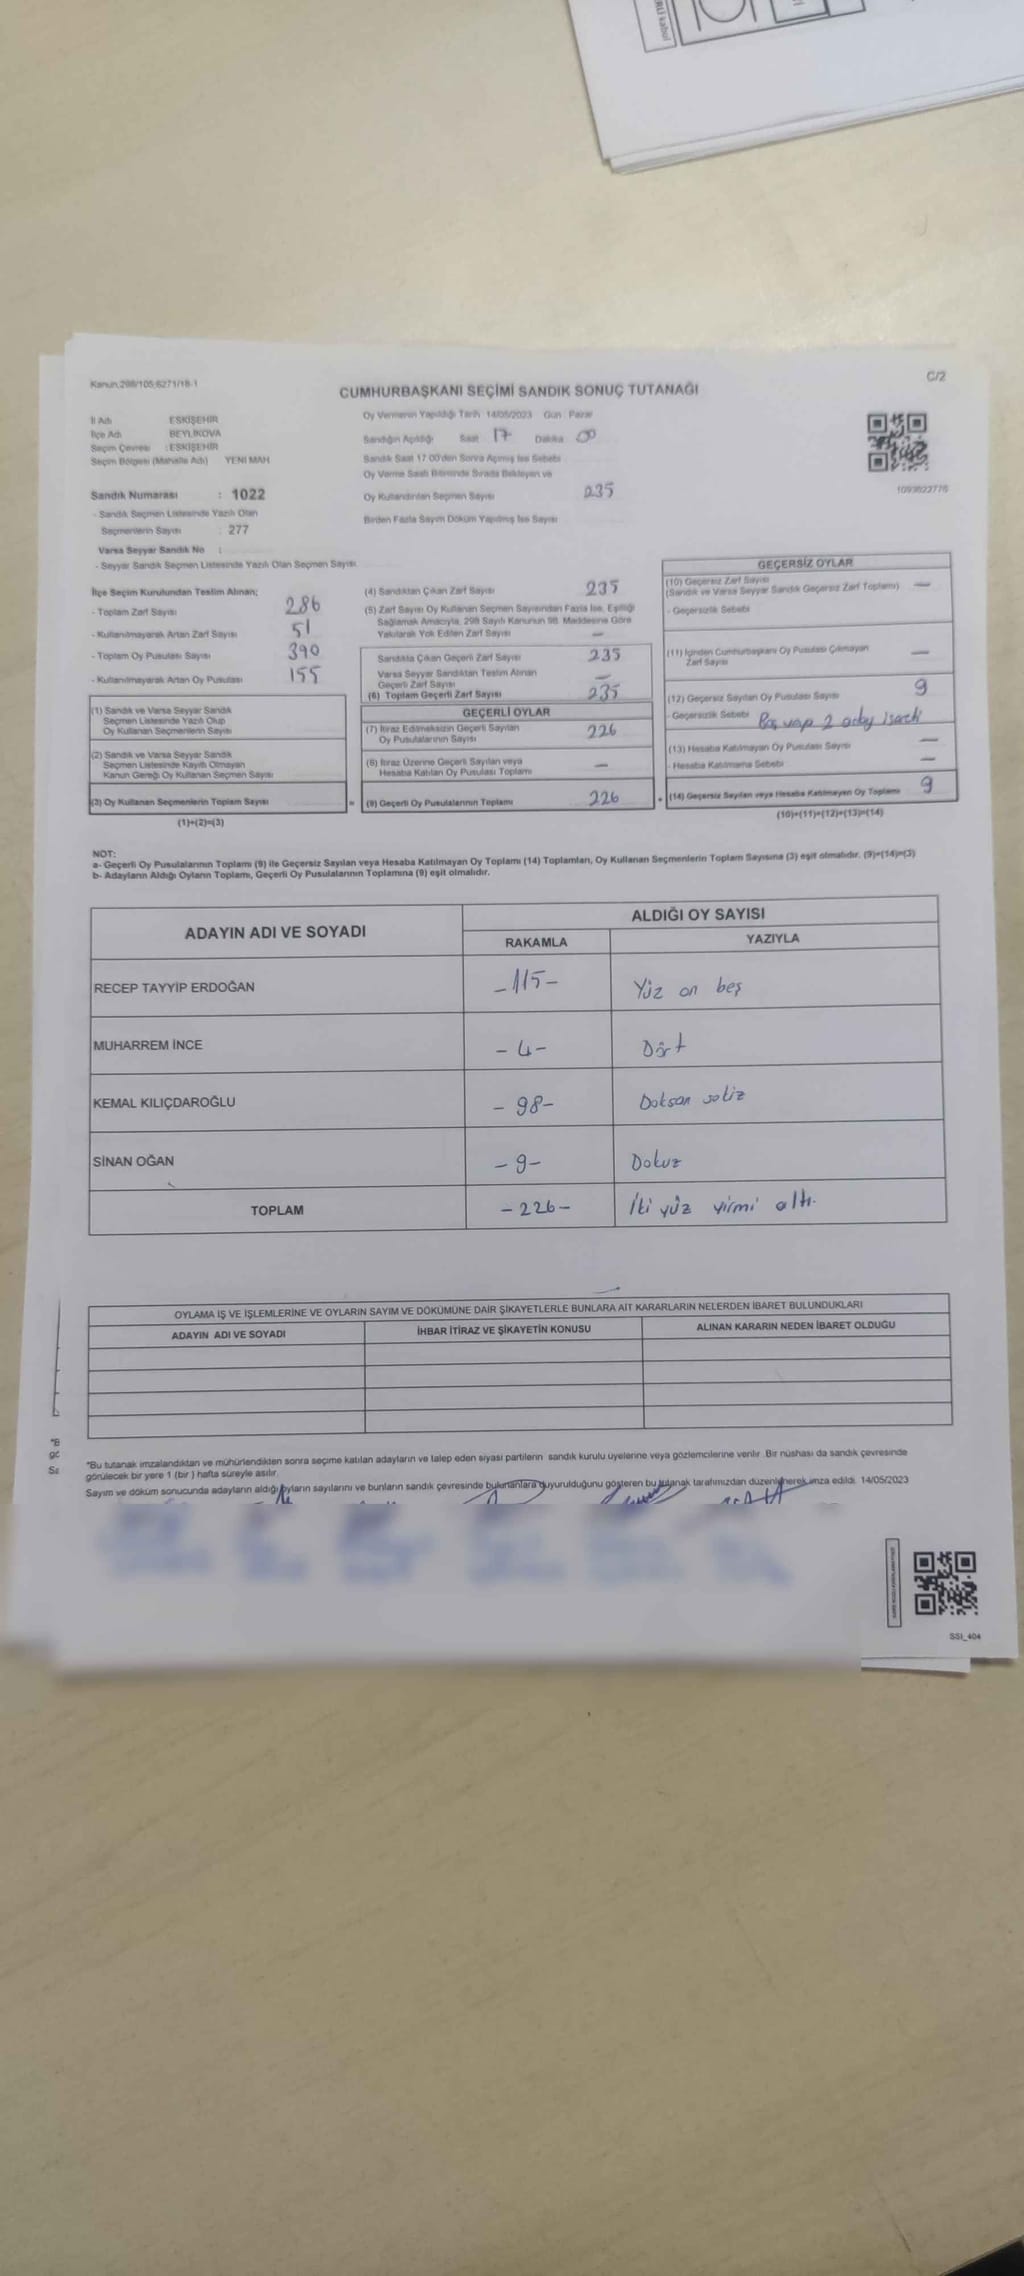 Kanun:298/105;6271/18-1
C/2
CUMHURBAŞKANI SEÇİMİ SANDIK SONUÇ TUTANAĞI
İl Adı ESKİŞEHİR
İlçe Adı BEYLİKOVA
Seçim Çevresi : ESKİŞEHİR
Seçim Bölgesi (Mahalle Adı) YENİ MAH
Sandık Numarası : 1022
- Sandık Seçmen Listesinde Yazılı Olan
Seçmenlerin Sayısı : 277
Varsa Seyyar Sandık No :
- Seyyar Sandık Seçmen Listesinde Yazılı Olan Seçmen Sayısı
Oy Vermenin Yapıldığı Tarih 14/05/2023 Gün : Pazar
Sandığın Açıldığı Saat 17 Dakika 00
Sandık Saat 17:00'den Sonra Açılmış İse Sebebi
Oy Verme Saati Bitiminde Sırada Bekleyen ve
Oy Kullandırılan Seçmen Sayısı 235
Birden Fazla Sayım Döküm Yapılmış İse Sayısı
1093622776
İlçe Seçim Kurulundan Teslim Alınan;
- Toplam Zarf Sayısı 286
- Kullanılmayarak Artan Zarf Sayısı 51
- Toplam Oy Pusulası Sayısı 390
- Kullanılmayarak Artan Oy Pusulası 155
(1) Sandık ve Varsa Seyyar Sandık
Seçmen Listesinde Yazılı Olup
Oy Kullanan Seçmenlerin Sayısı
(2) Sandık ve Varsa Seyyar Sandık
Seçmen Listesinde Kayıtlı Olmayan
Kanun Gereği Oy Kullanan Seçmen Sayısı
(3) Oy Kullanan Seçmenlerin Toplam Sayısı =
(1)+(2)=(3)
(4) Sandıktan Çıkan Zarf Sayısı 235
(5) Zarf Sayısı Oy Kullanan Seçmen Sayısından Fazla İse, Eşitliği
Sağlamak Amacıyla, 298 Sayılı Kanunun 98. Maddesine Göre
Yakılarak Yok Edilen Zarf Sayısı —
Sandıkta Çıkan Geçerli Zarf Sayısı 235
Varsa Seyyar Sandıktan Teslim Alınan
Geçerli Zarf Sayısı —
(6) Toplam Geçerli Zarf Sayısı 235
GEÇERLİ OYLAR
(7) İtiraz Edilmeksizin Geçerli Sayılan
Oy Pusulalarının Sayısı 226
(8) İtiraz Üzerine Geçerli Sayılan veya
Hesaba Katılan Oy Pusulası Toplamı —
(9) Geçerli Oy Pusulalarının Toplamı 226 +
GEÇERSİZ OYLAR
(10) Geçersiz Zarf Sayısı
(Sandık ve Varsa Seyyar Sandık Geçersiz Zarf Toplamı) —
- Geçersizlik Sebebi
(11) İçinden Cumhurbaşkanı Oy Pusulası Çıkmayan
Zarf Sayısı —
(12) Geçersiz Sayılan Oy Pusulası Sayısı 9
- Geçersizlik Sebebi 2 aday
(13) Hesaba Katılmayan Oy Pusulası Sayısı —
- Hesaba Katılmama Sebebi —
(14) Geçersiz Sayılan veya Hesaba Katılmayan Oy Toplamı 9
(10)+(11)+(12)+(13)=(14)
NOT:
a- Geçerli Oy Pusulalarının Toplamı (9) ile Geçersiz Sayılan veya Hesaba Katılmayan Oy Toplamı (14) Toplamları, Oy Kullanan Seçmenlerin Toplam Sayısına (3) eşit olmalıdır. (9)+(14)=(3)
b- Adayların Aldığı Oyların Toplamı, Geçerli Oy Pusulalarının Toplamına (9) eşit olmalıdır.
ADAYIN ADI VE SOYADI
ALDIĞI OY SAYISI
RAKAMLA YAZIYLA
RECEP TAYYİP ERDOĞAN -115- Yüz on beş
MUHARREM İNCE -4- Dört
KEMAL KILIÇDAROĞLU -98- Doksan sekiz
SİNAN OĞAN -9- Dokuz
TOPLAM -226- İki yüz yirmi altı.
OYLAMA İŞ VE İŞLEMLERİNE VE OYLARIN SAYIM VE DÖKÜMÜNE DAİR ŞİKAYETLERLE BUNLARA AİT KARARLARIN NELERDEN İBARET BULUNDUKLARI
ADAYIN ADI VE SOYADI İHBAR İTİRAZ VE ŞİKAYETİN KONUSU ALINAN KARARIN NEDEN İBARET OLDUĞU
*Bu tutanak imzalandıktan ve mühürlendikten sonra seçime katılan adayların ve talep eden siyasi partilerin sandık kurulu üyelerine veya gözlemcilerine verilir. Bir nüshası da sandık çevresinde
görülecek bir yere 1 (bir ) hafta süreyle asılır.
Sayım ve döküm sonucunda adayların aldığı oyların sayılarını ve bunların sandık çevresinde bulunanlara duyurulduğunu gösteren bu tutanak tarafımızdan düzenlenerek imza edildi. 14/05/2023
SSI_404